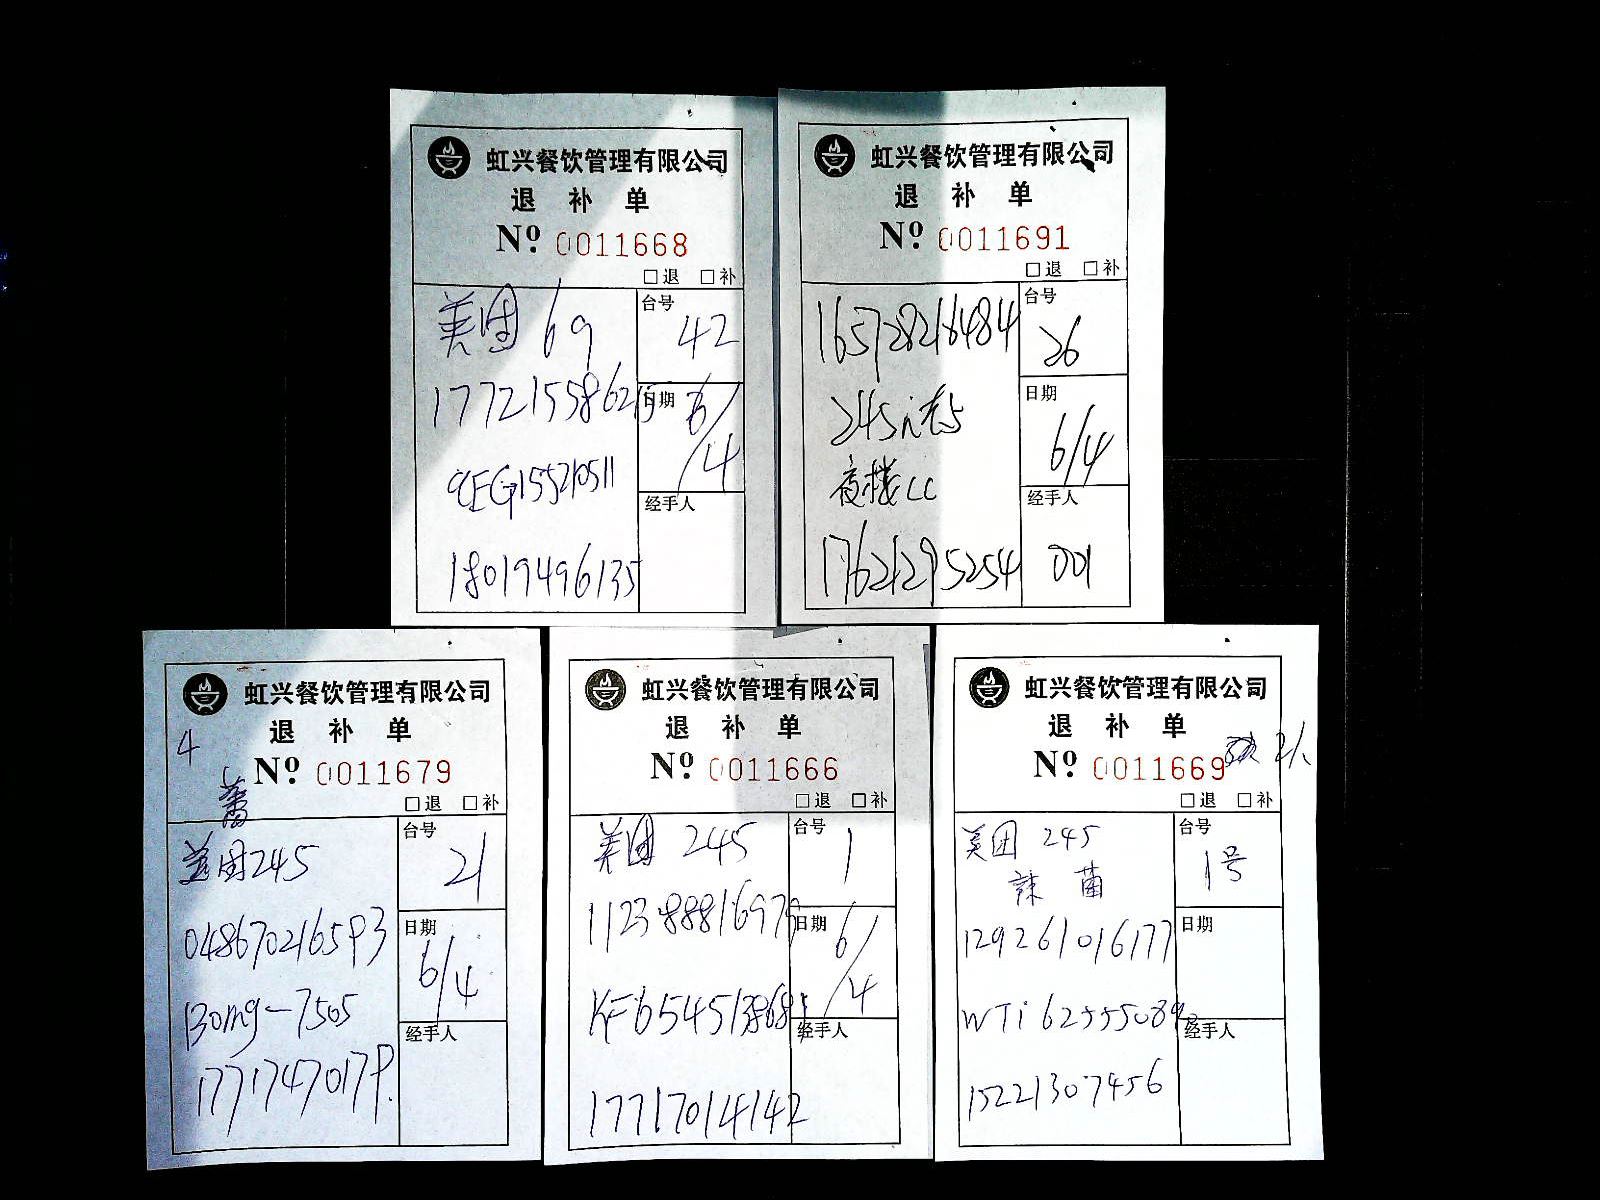 虹兴餐饮管理有限公司
退 补 单
Nº 0011668
□退 □补
美团 69
台号
42
177215586215
日期
6/4
QEG155210511
经手人
18019496135
虹兴餐饮管理有限公司
退 补 单
Nº 0011691
□退 □补
165728216484
台号
26
日期
6/4
245
CC
经手人
001
17621295254
虹兴餐饮管理有限公司
退 补 单
4
Nº 0011679
□退 □补
美团245
台号
21
048670216593
日期
6/4
130mg-7505
经手人
17717470179.
虹兴餐饮管理有限公司
退 补 单
Nº 0011666
□退 □补
美团 245
台号
1
112388816979
日期
6/4
经手人
17717014142
虹兴餐饮管理有限公司
退 补 单
Nº 0011669
2人
□退 □补
美团 245
辣 菌
台号
1号
129261016177
日期
WTi625550890
经手人
15221307456